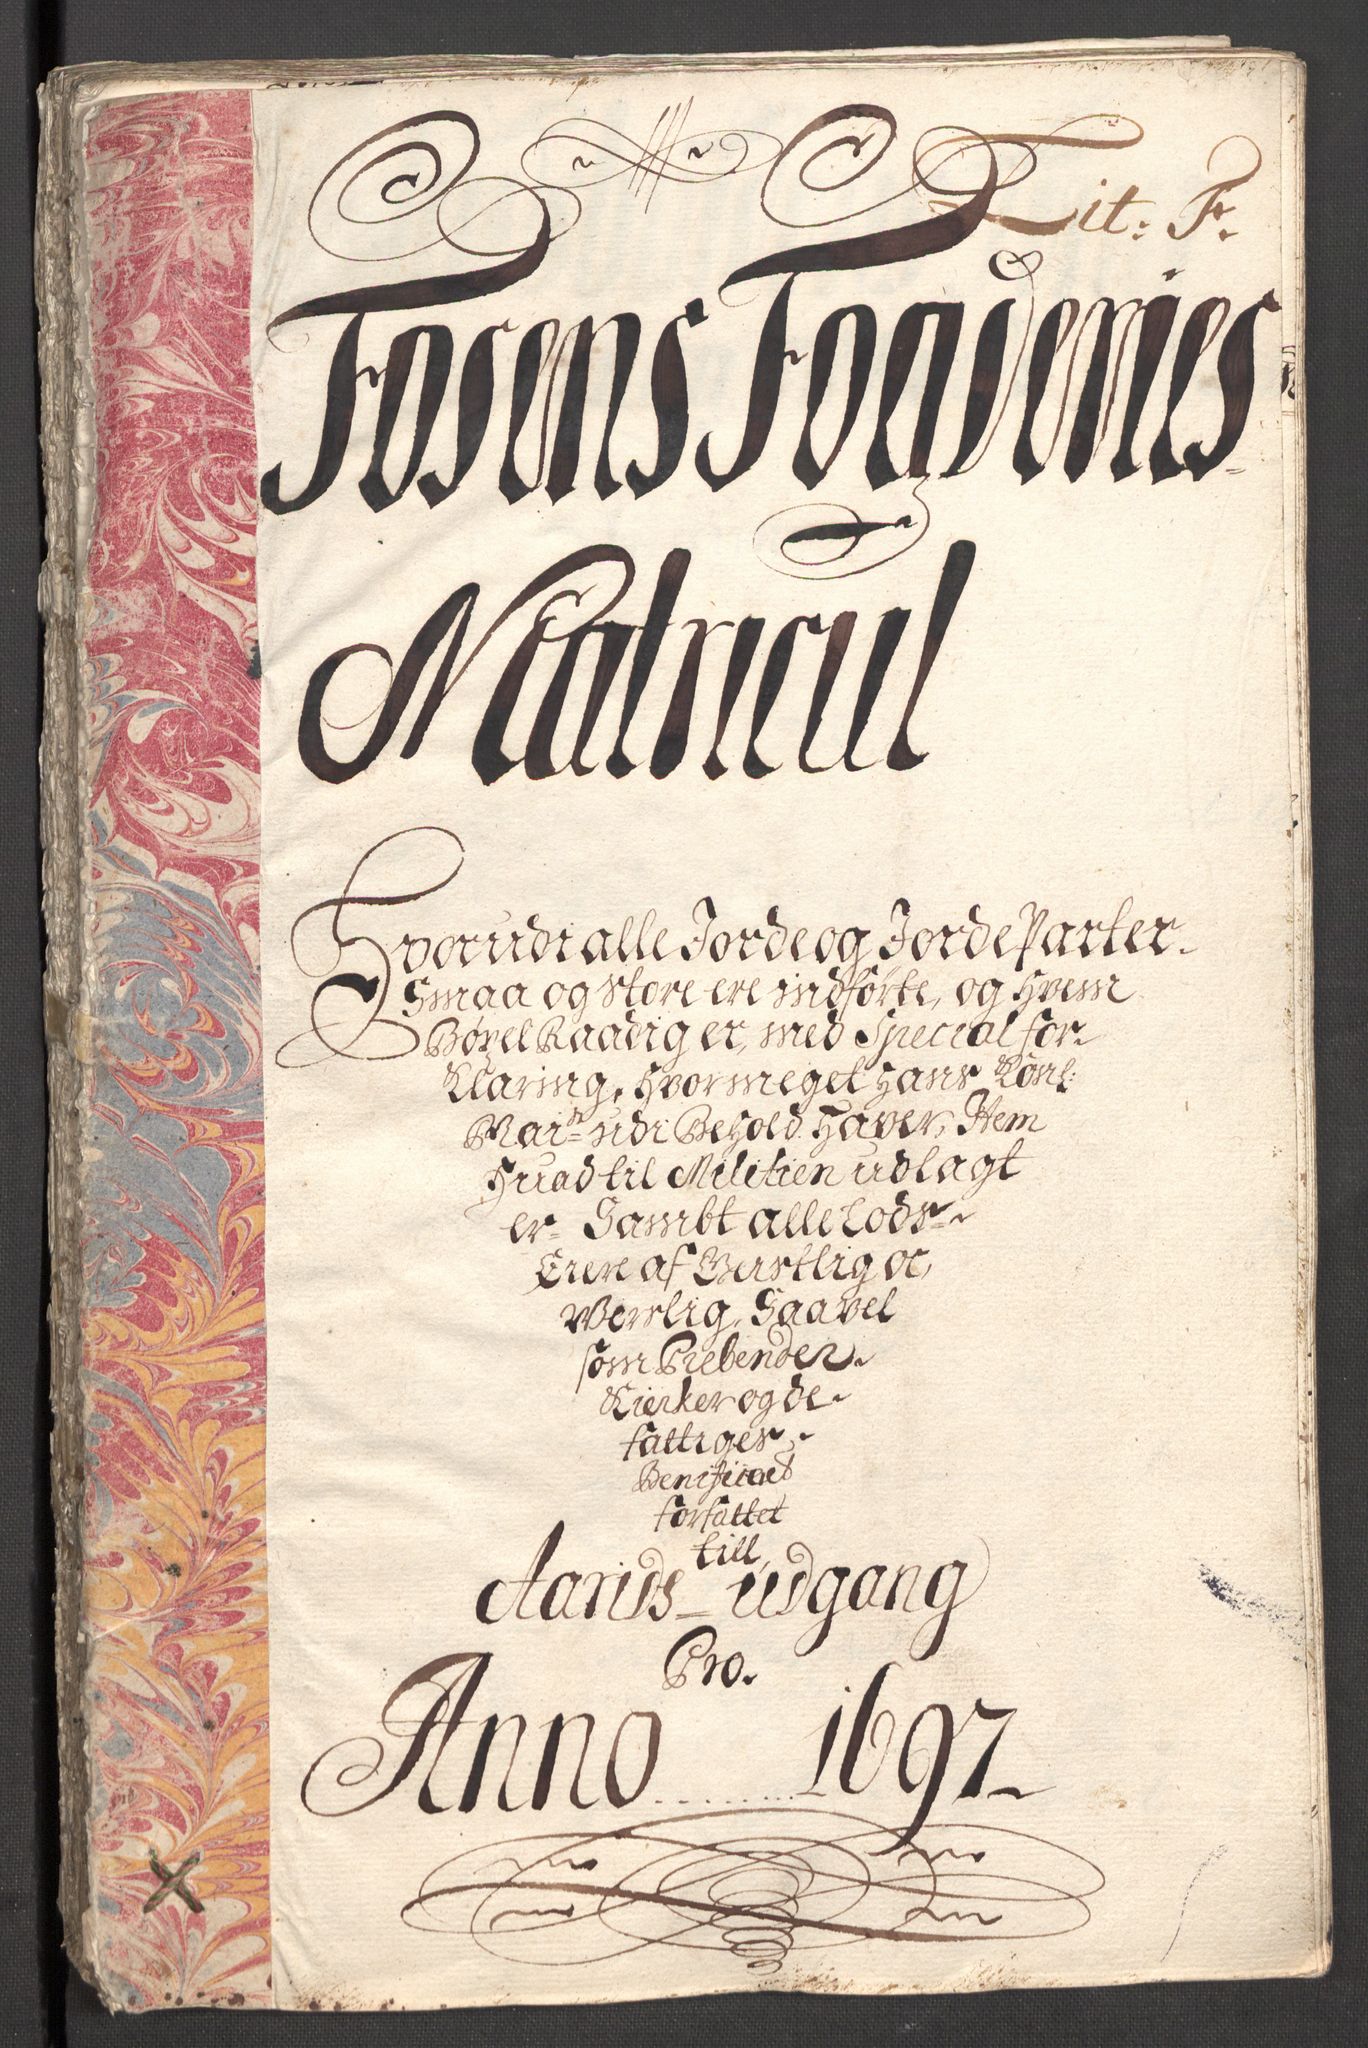 Lit: F.
Fosens Fogderies
Matricul
Hvorudi alle Jorde og Jorde Parter
Smaa og store ere indførte, og Hvem
Bøxel Raadig er, med Special for
Klaring, Hvormeget Hans Kongl:
Mai:tt udi Behold Haver, Item
Huad til Militien udlagt
er Sambt alle Lods
Eiere af Geistlig oc
Verslig, Saavel
som Prebender
Kierker og de
fattiges
Benificeret
forfattet
till
Aarids udgang
Pro.
Anno ........ 1697